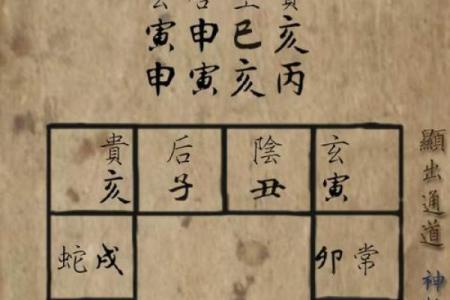 寅申巳亥
申寅亥丙
貴 后 陰 玄
亥 子 丑 寅
蛇戌 卯常
顯出通道 神